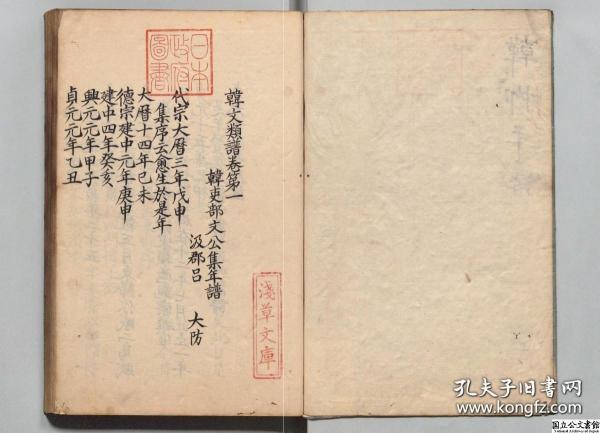 韓文類譜卷第一
韓吏部文公集年譜
汲郡呂 大防
代宗大曆三年戊申
集序云愈生於是年
大曆十四年己未
德宗建中元年庚申
建中四年癸亥
興元元年甲子
貞元元年乙丑
日本
政府
圖書
淺草文庫
孔夫子旧书网
www.kongfz.com
国立公文書館
National Archives of Japan